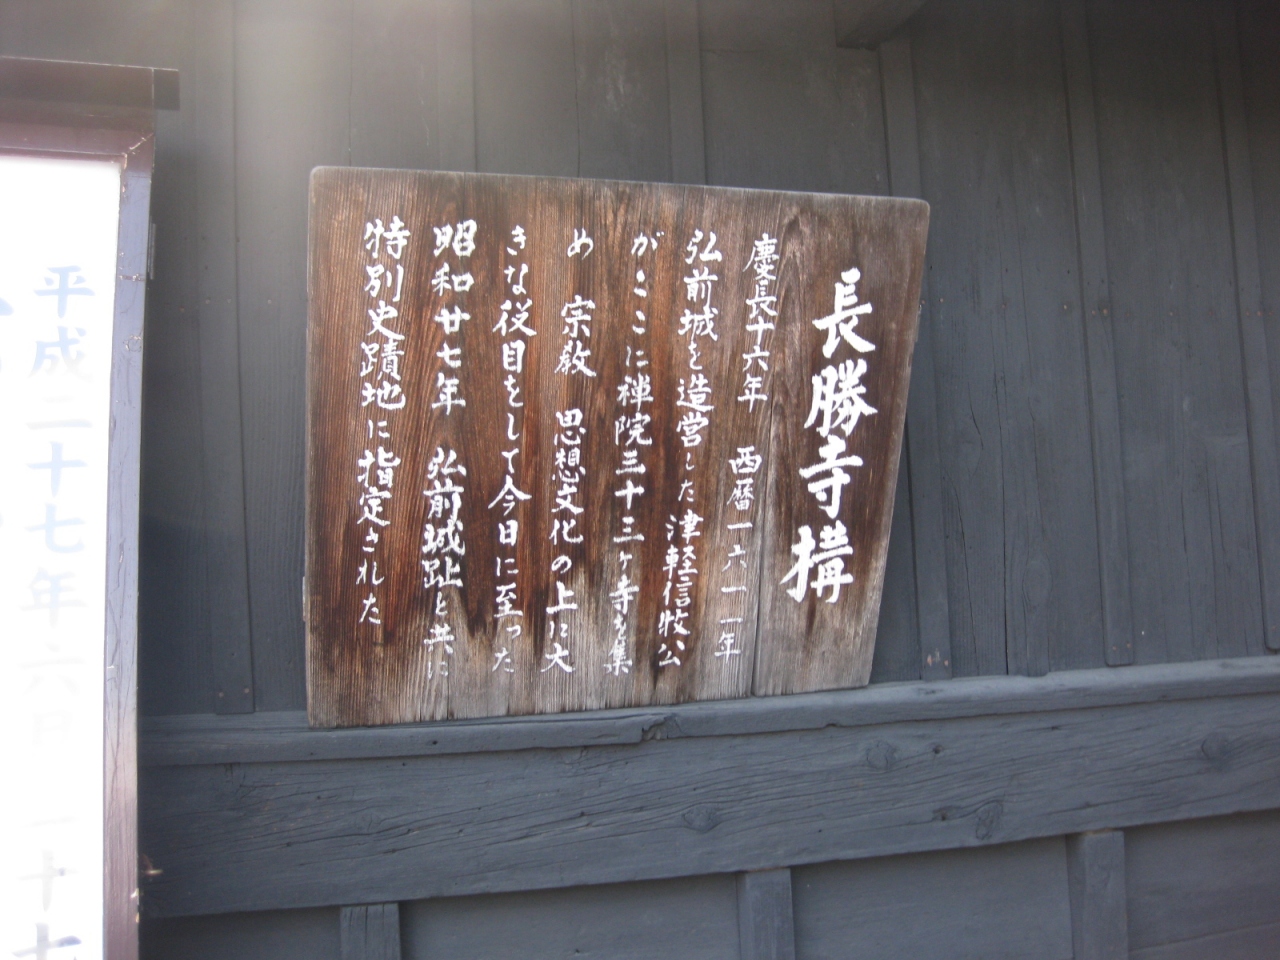 長勝寺構
慶長十六年 西暦一六一一年
弘前城を造営した津軽信牧公
がここに禅院三十三ヶ寺を集
め 宗教 思想文化の上に大
きな役目をして今日に至った
昭和廿七年 弘前城趾と共に
特別史蹟地に指定された
平成二十七年六日 十七